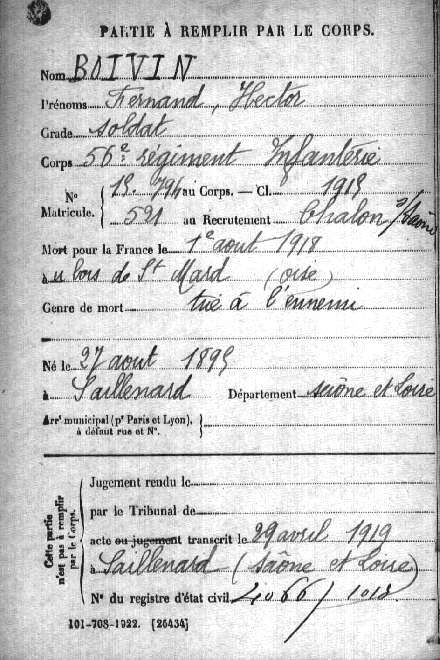 PARTIE À REMPLIR PAR LE CORPS.
Nom BOIVIN
Prénoms Fernand, Hector
Grade soldat
Corps 56e régiment Infanterie
N° Matricule. { 13.794 au Corps. — Cl. 1915
591 au Recrutement Chalon s/Saône
Mort pour la France le 1e aout 1918
à u bois de St Mard (oise)
Genre de mort tué à l'ennemi
Né le 27 aout 1895
à Saillenard Département saône et Loire
Arrt municipal (pr Paris et Lyon), à défaut rue et N°.
Cette partie n'est pas à remplir par le Corps.
Jugement rendu le
par le Tribunal de
acte ou jugement transcrit le 29 avril 1919
à Saillenard (Saône et Loire)
N° du registre d'état civil 4066/1018
101-708-1922. [26434]